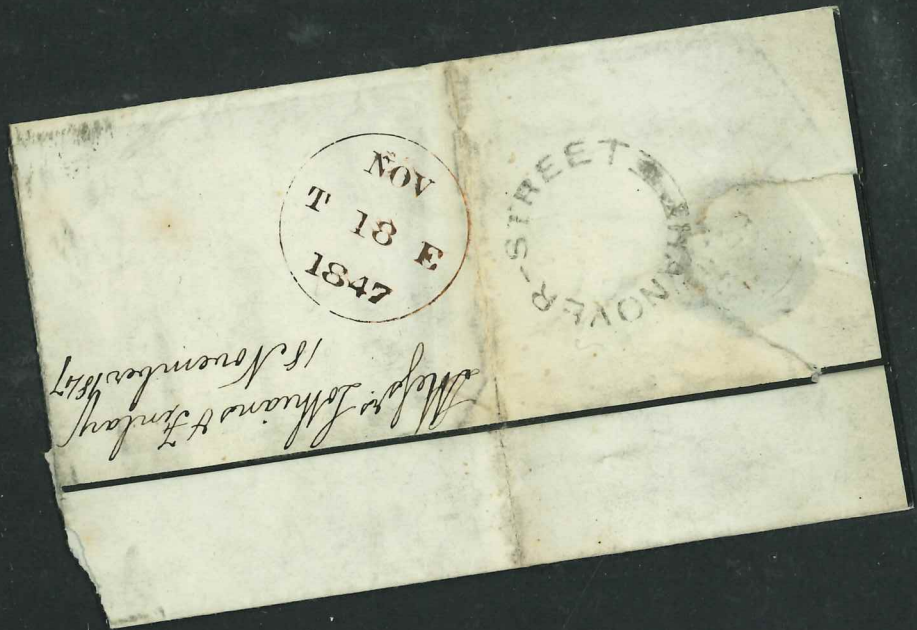 NOV
T 18 E
1847
HANOVER-STREET
Messrs Lothians & Finlay
18 November 1847